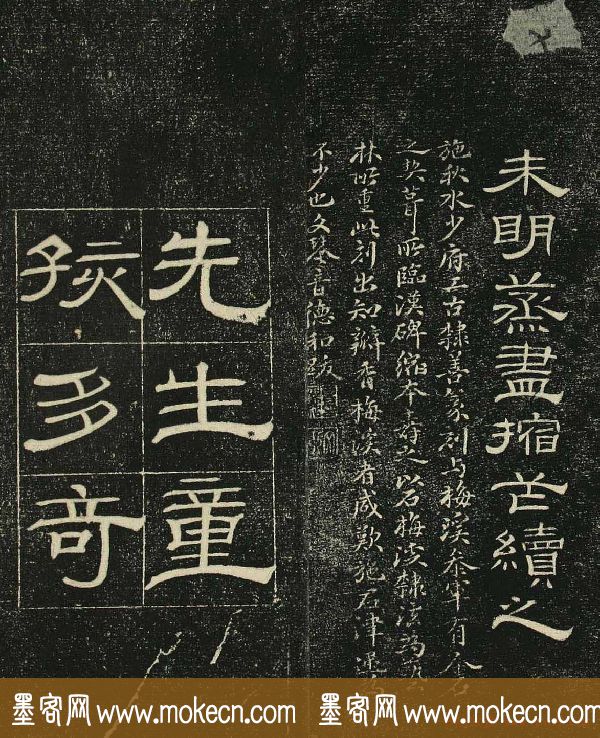 未明蒸盡摍續之
施秋水少府工古隸善篆刻与梅溪參軍有金石
之契葺所臨漢碑縮本壽之以石梅溪隸法為藝
林所重此刻出知瓣香梅溪者咸歎施君津逮
不少也文琴音德和跋
先生童
孩多奇
墨客网 www.mokecn.com
墨客网 www.mokecn.com